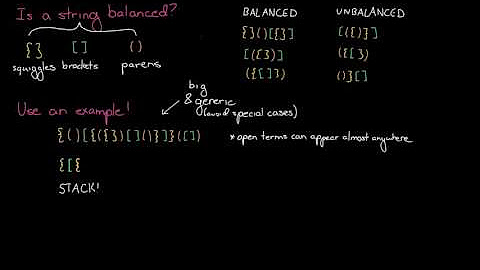 Is a string balanced?
{} [] ()
squiggles brackets parens
BALANCED UNBALANCED
{}()[{}] [({)}]
[({})] ({[})
({[]}) ()}[]
big
& generic
(avoid special cases)
Use an example!
{()[{({})[]()}]}([])
*open terms can appear almost anywhere
{[{
STACK!